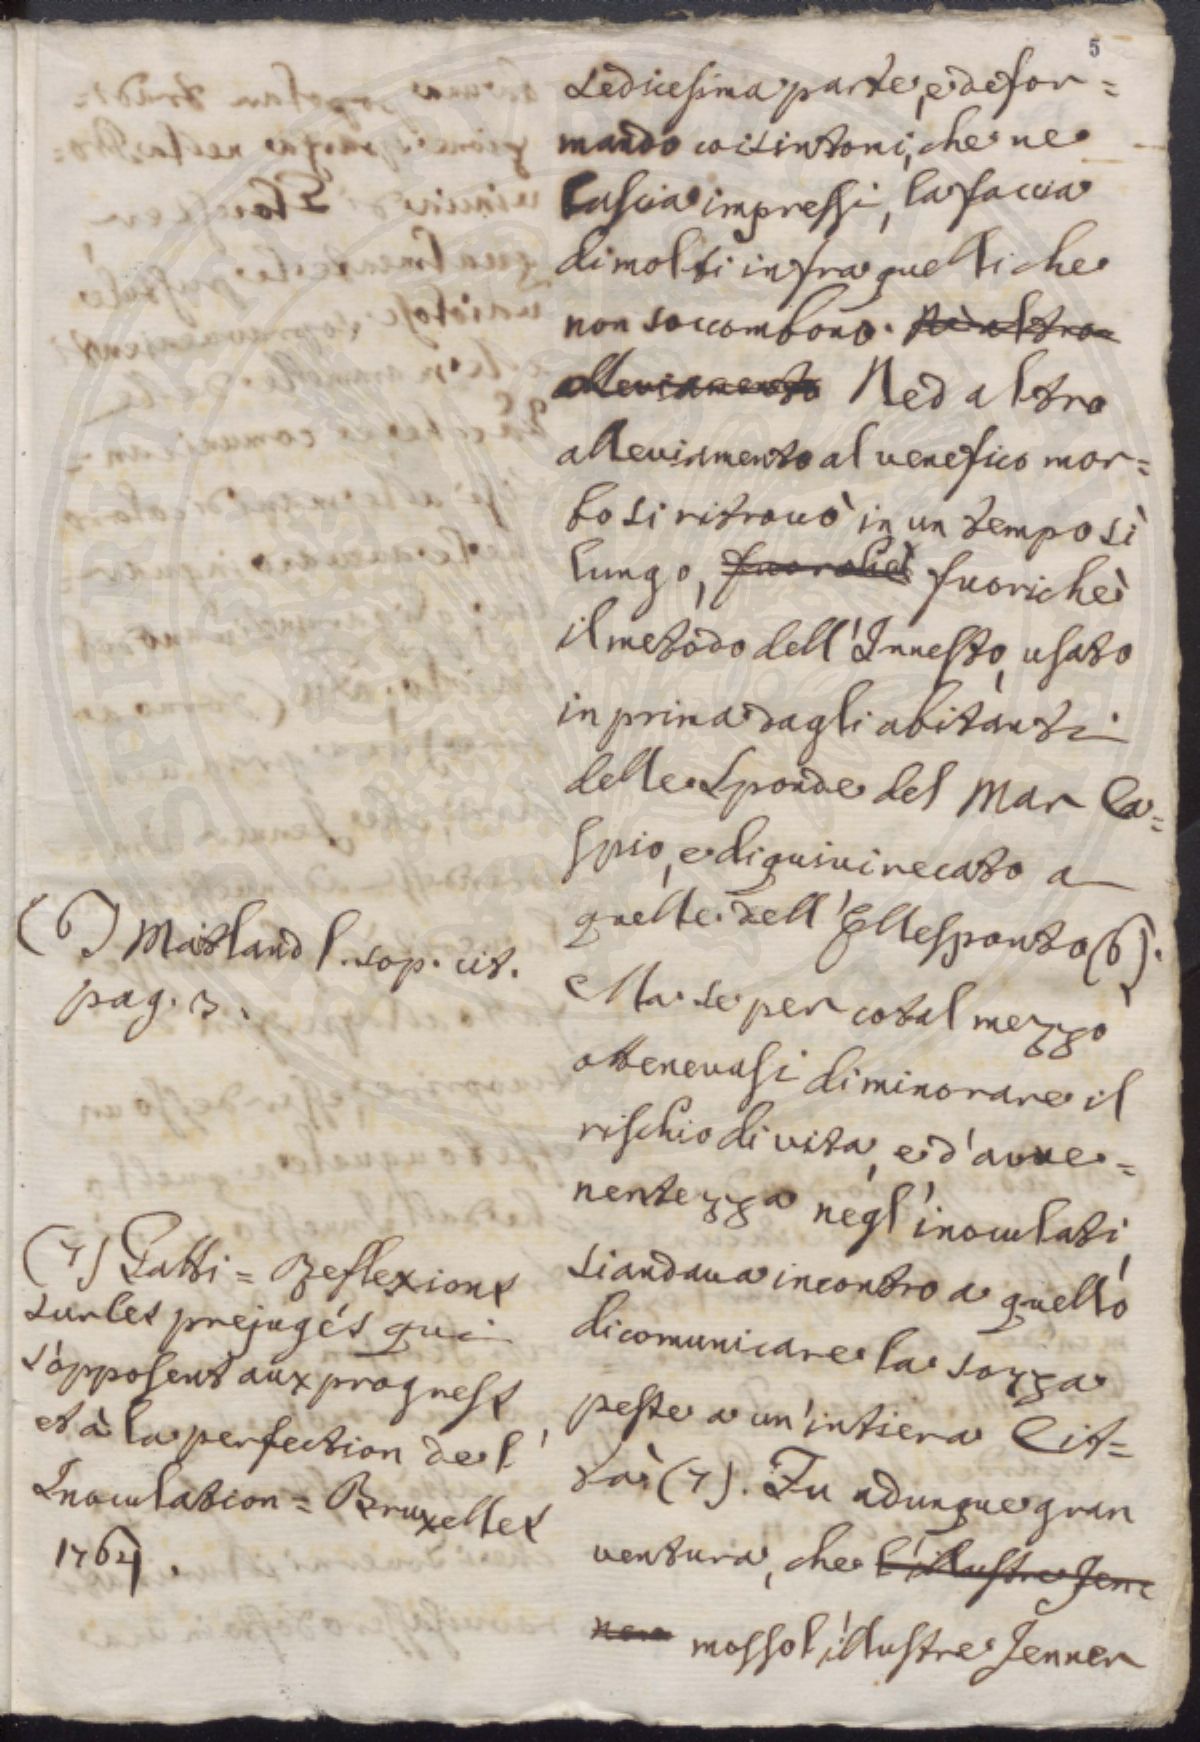 5
sedicesima parte, e defor=
mando coi sintoni, che ne
lascia impressi, la faccia
di molti infra quelli che
non soccombono. Nè altro
alleviamento Ned altro
alleviamento al venefico mor=
bo si ritrovò in un tempo sì
lungo, fuorchè fuorichè
il metodo dell'Innesto, usato
in prima dagli abitanti
delle sponde del Mar Ca=
spio, e di quivi recato a
quelle dell'Ellesponto (6).
Ma se per cotal mezzo
ottenevasi diminorare il
rischio di vita, e d'avve=
nentezza negl'inoculati,
si andava incontro a quello
di comunicare la sozza
peste a un'intiera Cit=
tà (7). Fu adunque gran
ventura, che l'illustre Jen=
ner mosso l'illustre Jenner
(6) Maitland l. sop. cit.
pag. 3.
(7) Gatti = Reflexions
sur les prejugés qui
s'opposent aux progress,
et à la perfection de l'
Inoculation = Bruxelles
1764.